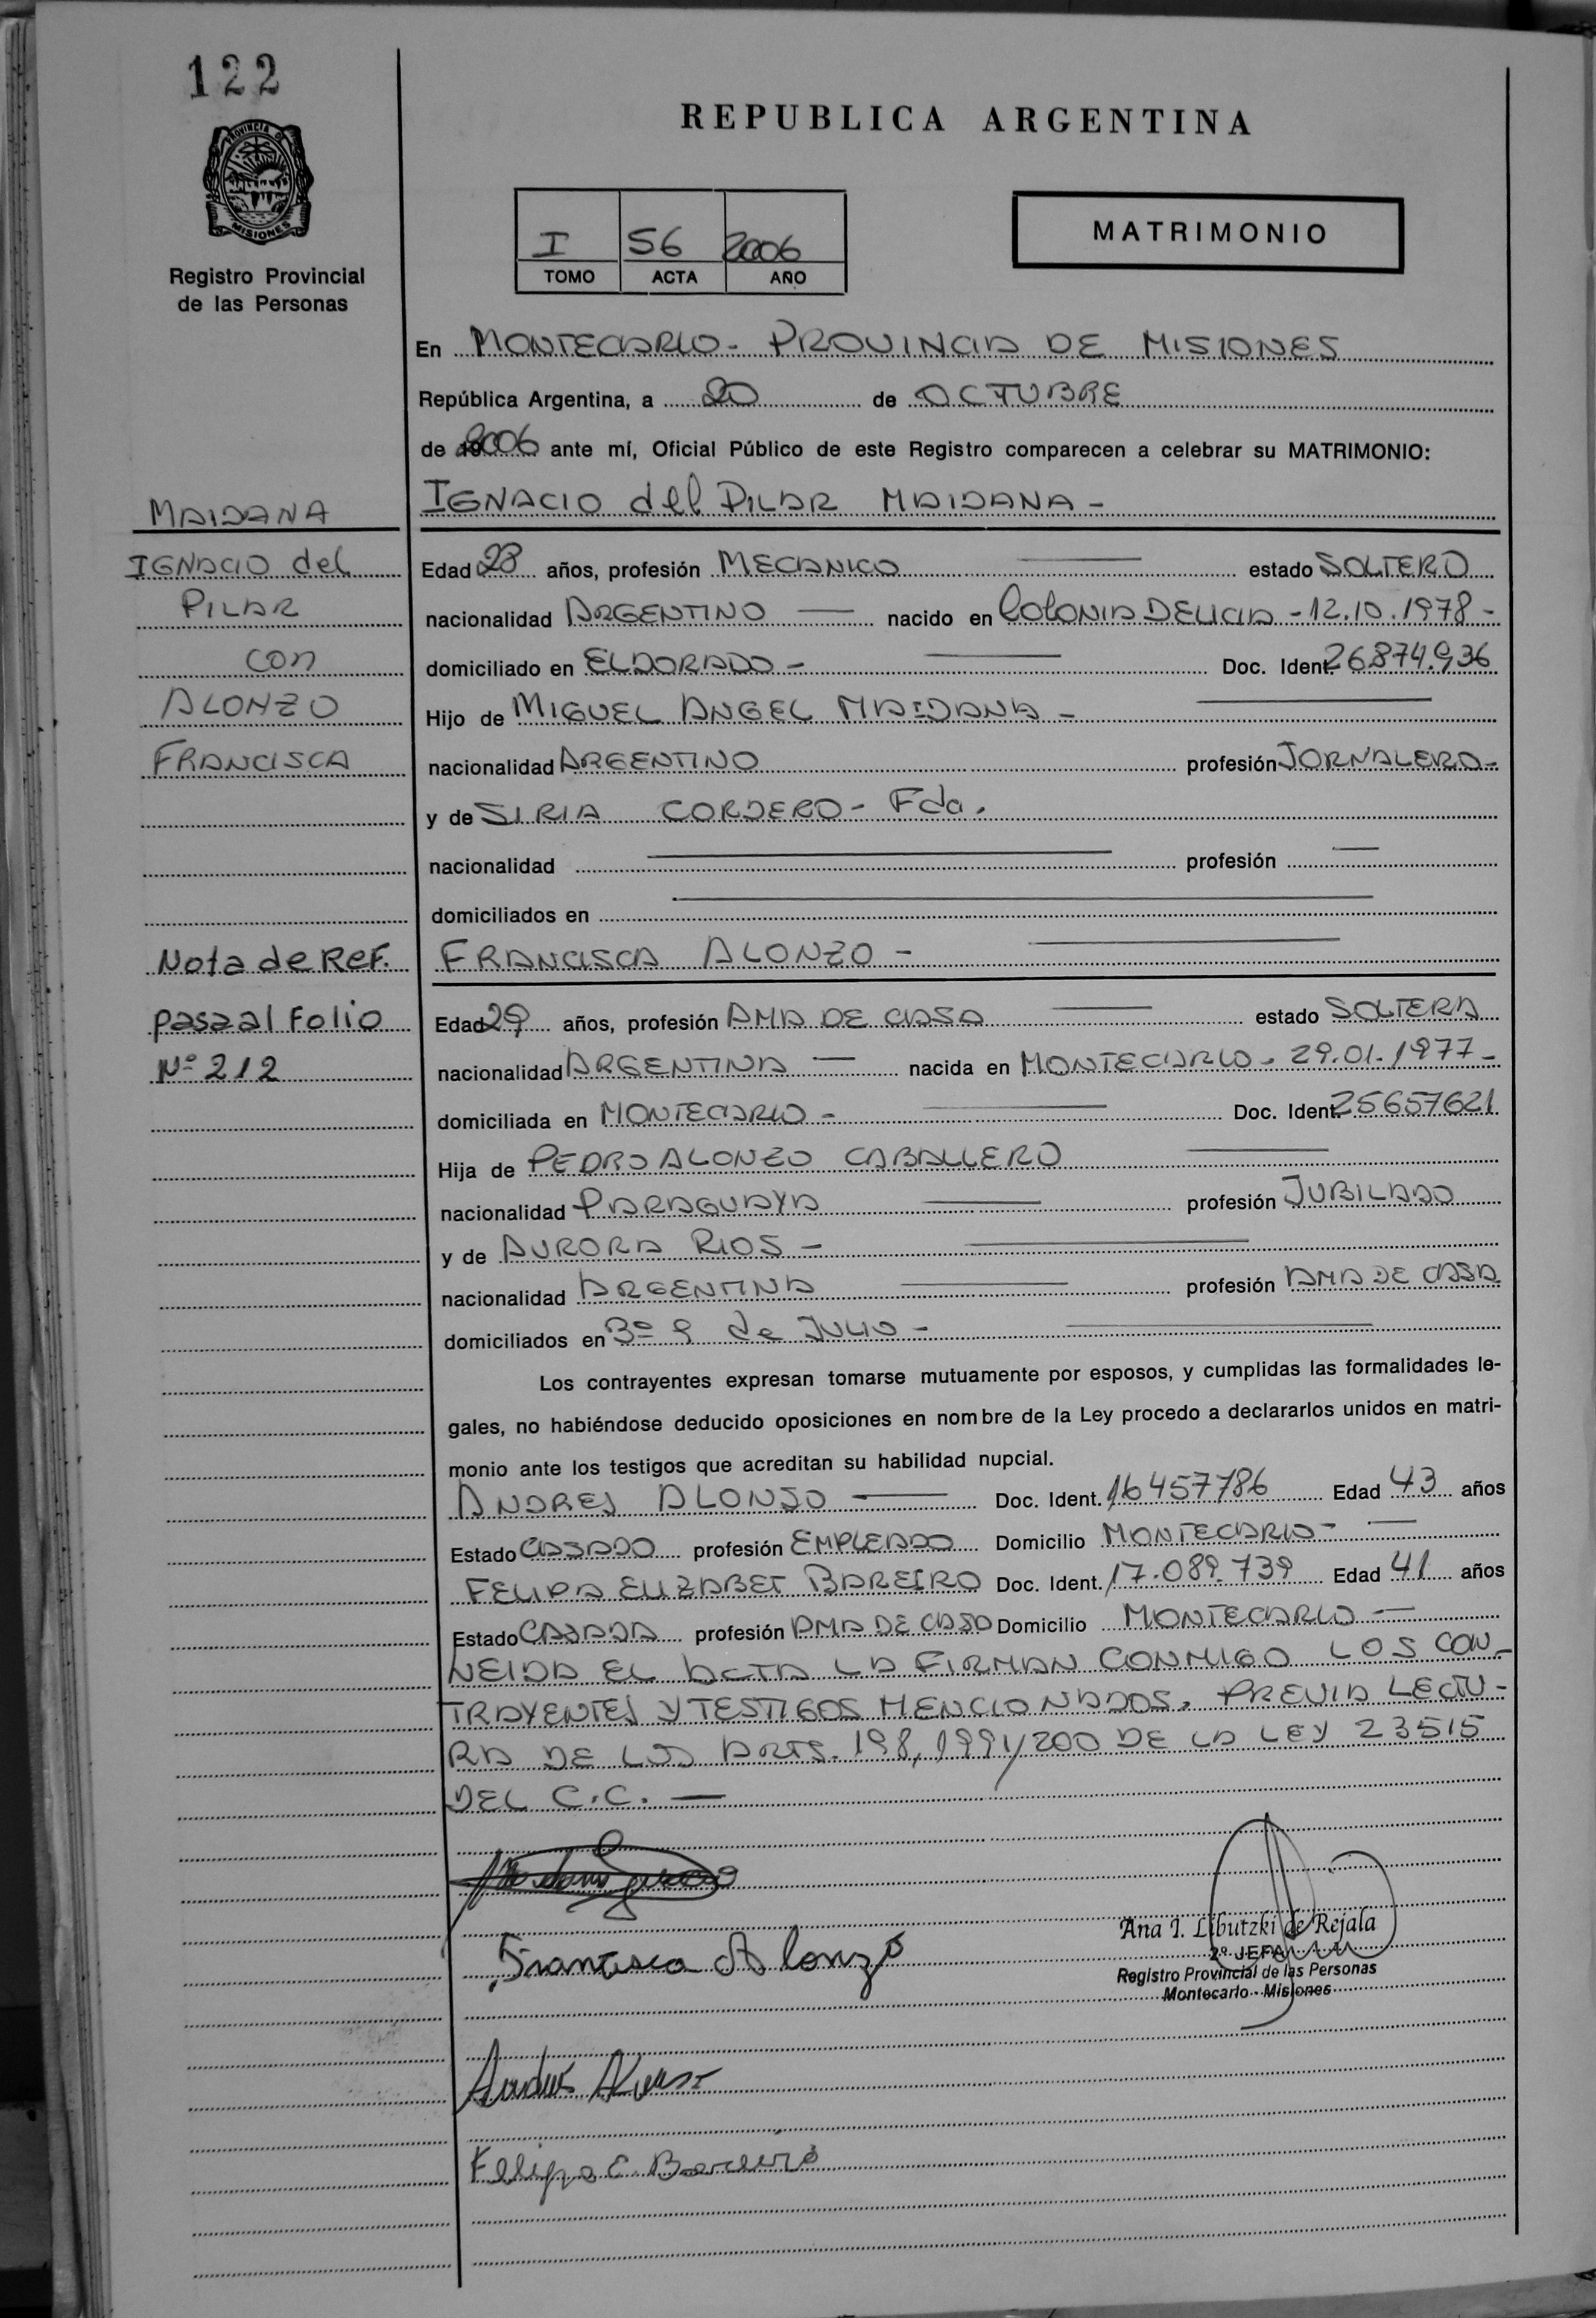 122
REPUBLICA ARGENTINA
PROVINCIA DE
MISIONES
Registro Provincial
de las Personas
I 56 2006
TOMO ACTA AÑO
MATRIMONIO
En MONTECARLO - PROVINCIA DE MISIONES
República Argentina, a 20 de OCTUBRE
de 2006 ante mí, Oficial Público de este Registro comparecen a celebrar su MATRIMONIO:
MAIDANA
IGNACIO del PILAR MAIDANA -
IGNACIO del
Edad 28 años, profesión MECANICO estado SOLTERO
PILAR
nacionalidad ARGENTINO nacido en COLONIA DELICIA - 12.10.1978 -
con
domiciliado en ELDORADO - Doc. Ident. 26.874.936
ALONZO
Hijo de MIGUEL ANGEL MAIDANA -
FRANCISCA
nacionalidad ARGENTINO profesión JORNALERO -
y de SIRIA CORDERO - Fda.
nacionalidad profesión
domiciliados en
Nota de Ref.
FRANCISCA ALONZO -
pasa al Folio
Edad 29 años, profesión AMA DE CASA estado SOLTERA
Nº 212
nacionalidad ARGENTINA nacida en MONTECARLO - 29.01.1977 -
domiciliada en MONTECARLO - Doc. Ident. 25657621
Hija de PEDRO ALONZO CABALLERO
nacionalidad PARAGUAYA profesión JUBILADO
y de AURORA RIOS -
nacionalidad ARGENTINA profesión AMA DE CASA
domiciliados en Bº 9 de JULIO -
Los contrayentes expresan tomarse mutuamente por esposos, y cumplidas las formalidades le-
gales, no habiéndose deducido oposiciones en nombre de la Ley procedo a declararlos unidos en matri-
monio ante los testigos que acreditan su habilidad nupcial.
ANDRES ALONSO Doc. Ident. 16457786 Edad 43 años
Estado CASADO profesión EMPLEADO Domicilio MONTECARLO -
FELIPA ELIZABET BAREIRO Doc. Ident. 17.089.739 Edad 41 años
Estado CASADA profesión AMA DE CASA Domicilio MONTECARLO
NEIDA EL ACTA LA FIRMAN CONMIGO LOS CON-
TRAYENTES Y TESTIGOS MENCIONADOS, PREVIA LECTU-
RA DE LOS ARTS. 198, 199 y 200 DE LA LEY 23515
DEL C.C.
Ana I. Libutzki de Rejala
2º JEFA
Francisca Alonzo
Registro Provincial de las Personas
Montecarlo - Misiones
Andres Alonso
Felipa E. Bareiro